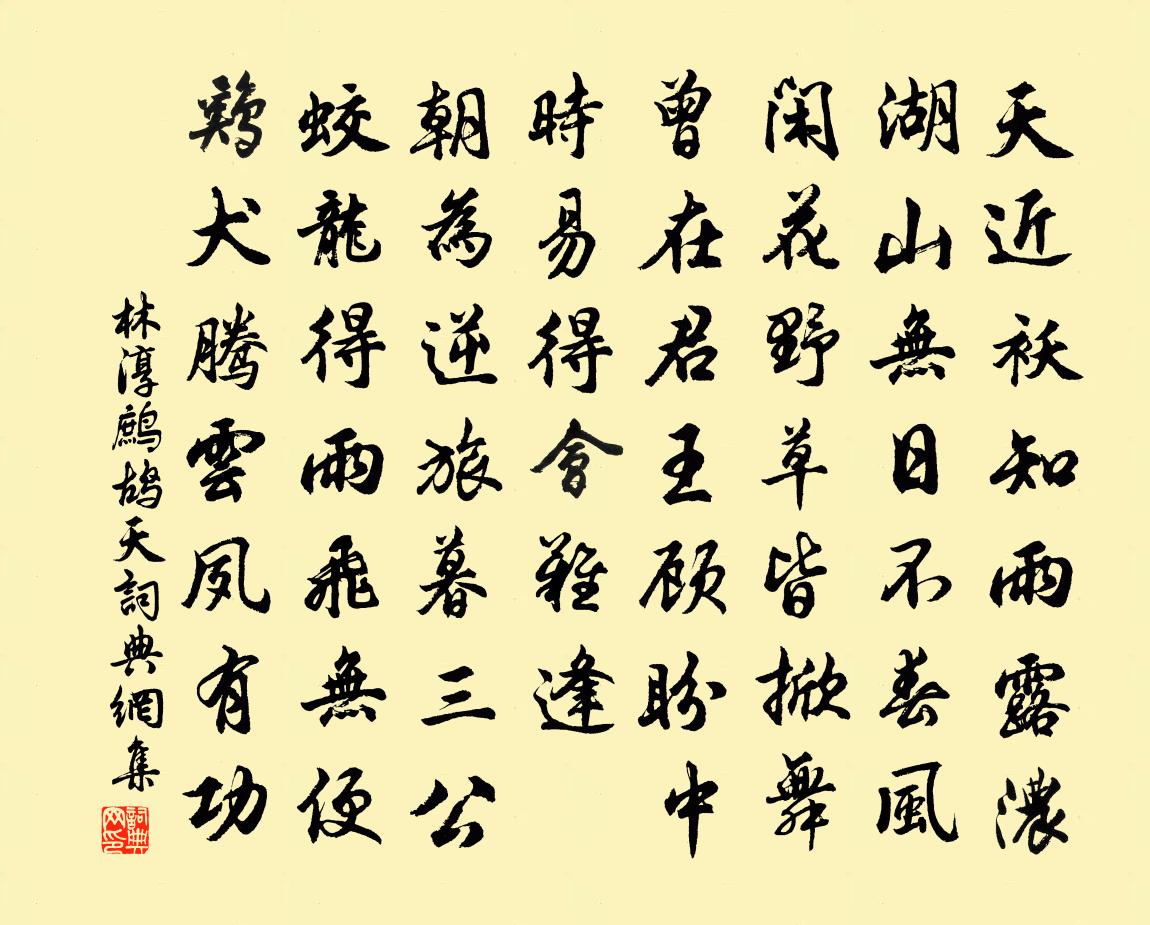 天近祆知雨露濃
湖山無日不春風
閑花野草皆掀舞
曾在君王顧盼中
時易得會難逢
朝為逆旅暮三公
蛟龍得雨飛無便
鷄犬騰雲夙有功
林淳鷓鴣天詞典網集
詞典網印